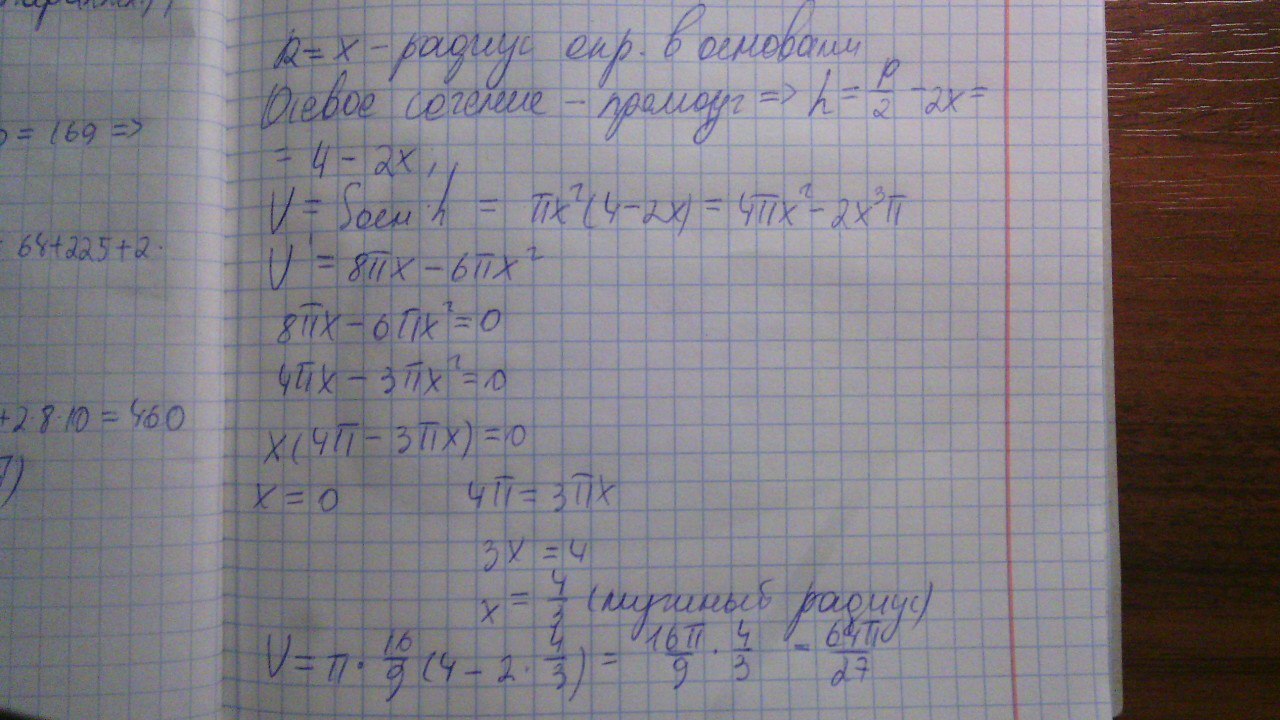 = 169 =>
64+225+2·
+2·8·10 = 460
R = x - радиус окр. в основании
Осевое сечение - прямоуг => h = P/2 - 2x =
= 4 - 2x,
V = Sосн·h = πx²(4-2x) = 4πx² - 2x³π
V' = 8πx - 6πx²
8πx - 6πx² = 0
4πx - 3πx² = 0
x(4π - 3πx) = 0
x = 0 4π = 3πx
3x = 4
x = 4/3 ( радиус)
V = π · 16/9 (4 - 2 · 4/3) = 16π/9 · 4/3 = 64π/27